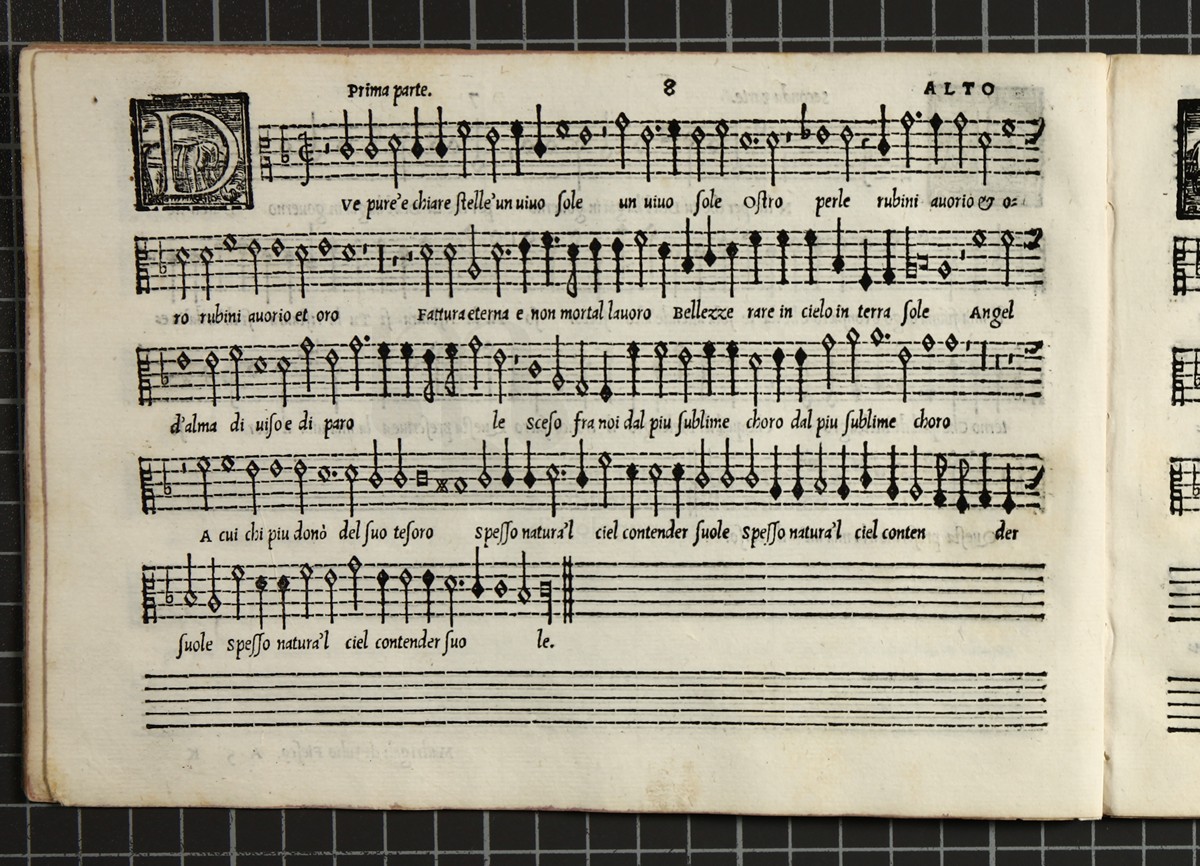 Prima parte. 8 ALTO
D
Ve pure'e chiare ſtelle'un uiuo ſole un uiuo ſole Oſtro perle rubini auorio & o=
ro rubini auorio et oro Fattura eterna e non mortal lauoro Bellezze rare in cielo in terra ſole Angel
d'alma di uiſo e di paro le Sceſo fra noi dal piu ſublime choro dal piu ſublime choro
A cui chi piu donò del ſuo teſoro Speſſo natura'l ciel contender ſuole Speſſo natura'l ciel conten der
ſuole Speſſo natura'l ciel contender ſuo le.